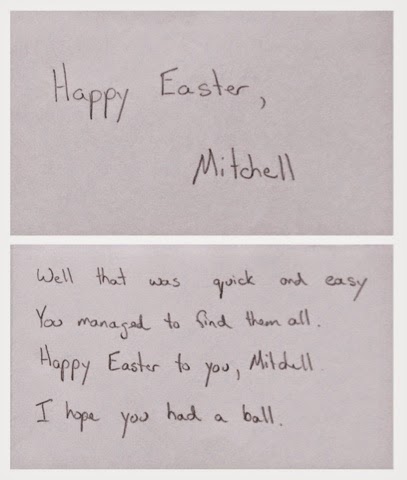 Happy Easter,
Mitchell
Well that was quick and easy
You managed to find them all.
Happy Easter to you, Mitchell.
I hope you had a ball.